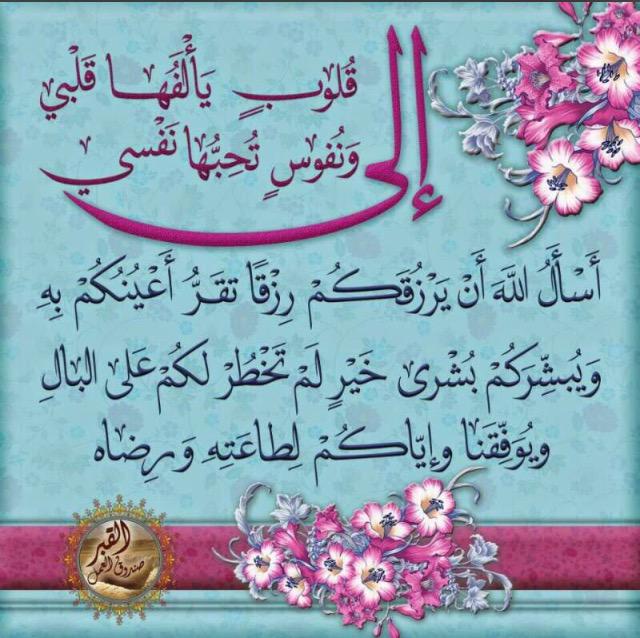 إلى
قُلوبٍ يَأْلَفُهَا قَلْبي
وَنُفوسٍ تُحِبُّهَا نَفْسي
أَسْأَلُ اللهَ أَنْ يَرْزُقَكُمْ رِزْقًا تَقَرُّ أَعْيُنُكُمْ بِهِ
وَيُبشِّرَكُمْ بُشْرى خَيْرٍ لَمْ تَخْطُرْ لَكُمْ عَلى البَالِ
ويُوَفِّقَنَا وإيّاكُمْ لِطاعَتِهِ وَرِضاه
القبر
صندوق العمل